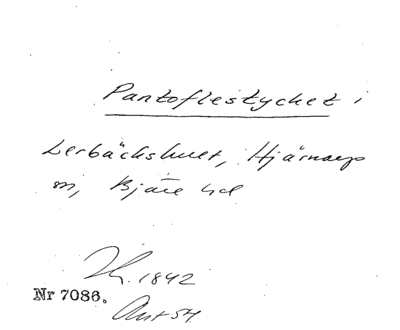 Pantoflestycket i
Lerbäckshult, Hjärnarp
sn, Bjäre hd
1842
Nr 7086.
Ant 54